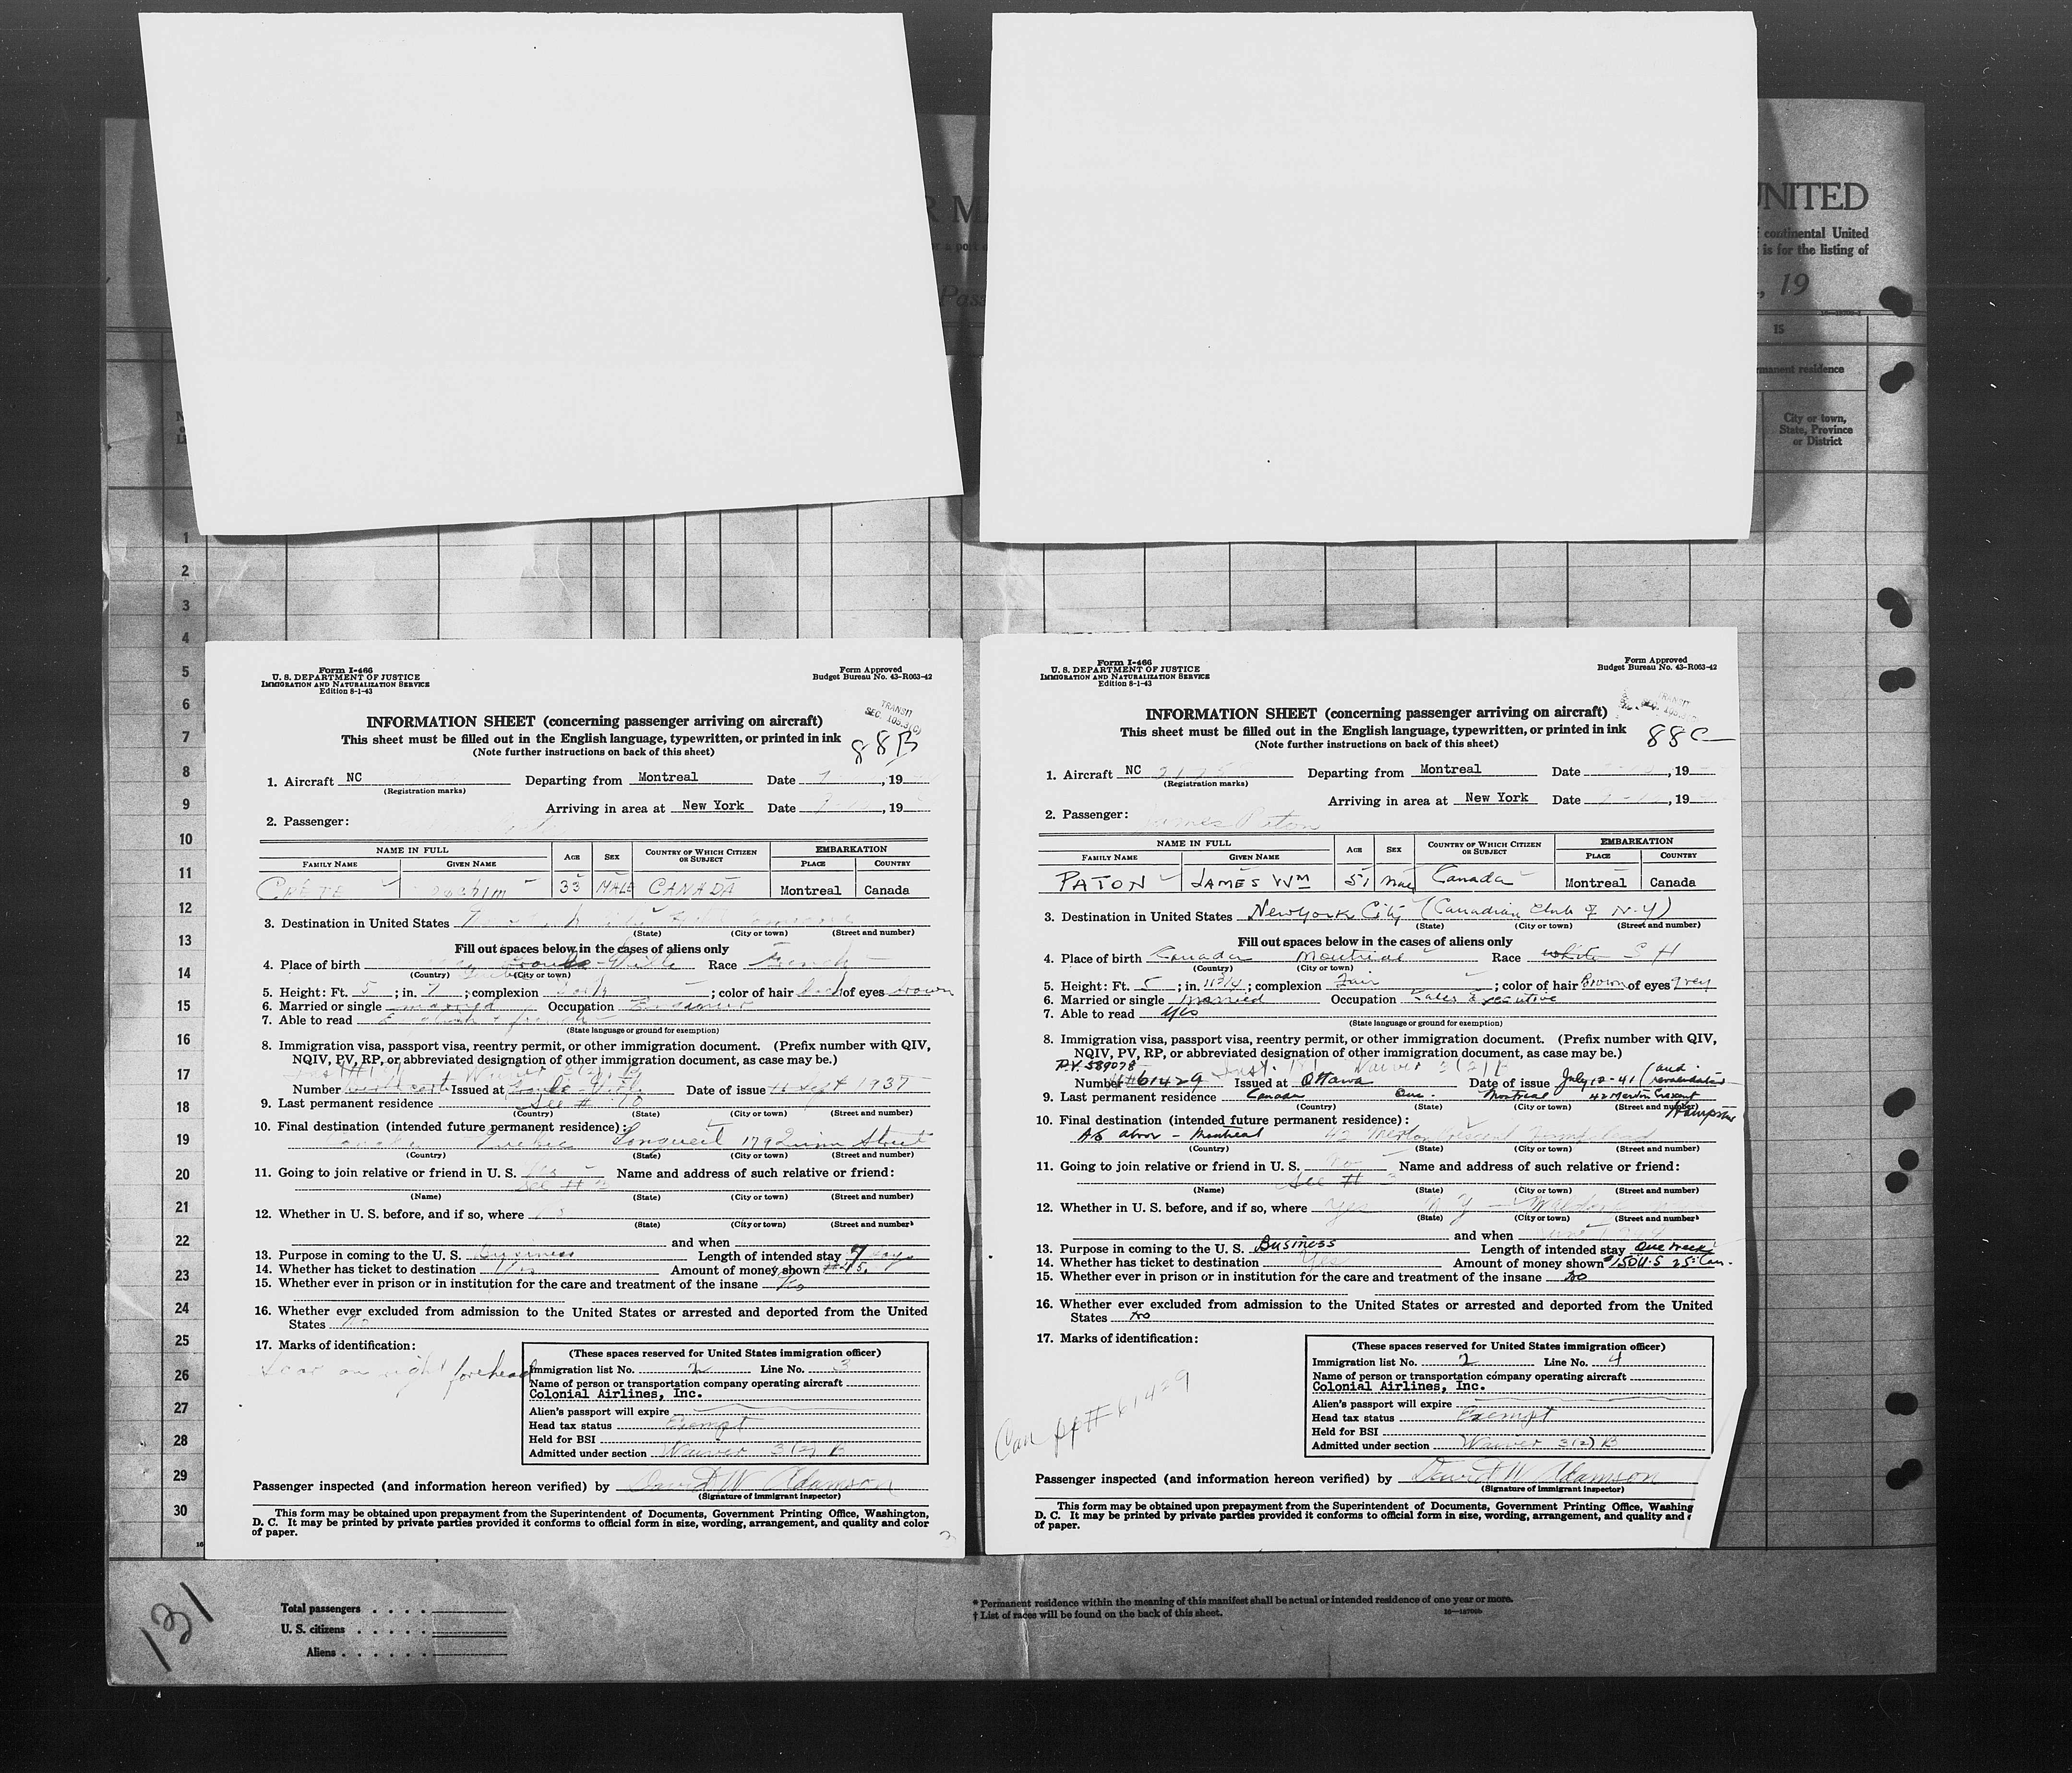 R MA
UNITED
continental United
is for the listing of
Pass
, 19
15
manent residence
City or town,
State, Province
or District
1
2
3
4
5
6
7
8
9
10
11
12
13
14
15
16
17
18
19
20
21
22
23
24
25
26
27
28
29
30
Form I-466
U. S. DEPARTMENT OF JUSTICE
IMMIGRATION AND NATURALIZATION SERVICE
Edition 8-1-43
Form Approved
Budget Bureau No. 43-R063-42
TRANSIT
SEC. 105.3(C)
INFORMATION SHEET (concerning passenger arriving on aircraft)
This sheet must be filled out in the English language, typewritten, or printed in ink
88B
(Note further instructions on back of this sheet)
1. Aircraft NC Departing from Montreal Date 7 , 19
(Registration marks)
Arriving in area at New York Date , 19
2. Passenger:
NAME IN FULL AGE SEX COUNTRY OF WHICH CITIZEN OR SUBJECT EMBARKATION
FAMILY NAME GIVEN NAME PLACE COUNTRY
CRÊTE 33 MALE CANADA Montreal Canada
3. Destination in United States
(State) (City or town) (Street and number)
Fill out spaces below in the cases of aliens only
4. Place of birth Race French
(Country) (City or town)
5. Height: Ft. 5 ; in. 7 ; complexion Dark ; color of hair of eyes brown
6. Married or single married Occupation
7. Able to read English + french
(State language or ground for exemption)
8. Immigration visa, passport visa, reentry permit, or other immigration document. (Prefix number with QIV,
NQIV, PV, RP, or abbreviated designation of other immigration document, as case may be.)
Waiver 3(2) B
Number Issued at Date of issue 16 Sept 1937
9. Last permanent residence See # 10
(Country) (State) (City or town) (Street and number)
10. Final destination (intended future permanent residence):
Canada Quebec Longueuil 179 Quinn Street
(Country) (State) (City or town) (Street and number)
11. Going to join relative or friend in U. S. Yes Name and address of such relative or friend:
See # 3
(Name) (State) (City or town) (Street and number)
12. Whether in U. S. before, and if so, where
(State) (City or town) (Street and number)
and when
13. Purpose in coming to the U. S. Business Length of intended stay 7 days
14. Whether has ticket to destination Yes Amount of money shown
15. Whether ever in prison or in institution for the care and treatment of the insane No
16. Whether ever excluded from admission to the United States or arrested and deported from the United
States No
17. Marks of identification:
Scar on right forehead
(These spaces reserved for United States immigration officer)
Immigration list No. 2 Line No. 3
Name of person or transportation company operating aircraft
Colonial Airlines, Inc.
Alien's passport will expire
Head tax status Exempt
Held for BSI
Admitted under section Waiver 3(2) B
Passenger inspected (and information hereon verified) by David W Adamson
(Signature of immigrant inspector)
This form may be obtained upon prepayment from the Superintendent of Documents, Government Printing Office, Washington,
D. C. It may be printed by private parties provided it conforms to official form in size, wording, arrangement, and quality and color
of paper.
3
Form I-466
U. S. DEPARTMENT OF JUSTICE
IMMIGRATION AND NATURALIZATION SERVICE
Edition 8-1-43
Form Approved
Budget Bureau No. 43-R063-42
TRANSIT
INFORMATION SHEET (concerning passenger arriving on aircraft)
This sheet must be filled out in the English language, typewritten, or printed in ink
88C
(Note further instructions on back of this sheet)
1. Aircraft NC Departing from Montreal Date , 19
(Registration marks)
Arriving in area at New York Date , 19
2. Passenger: James Paton
NAME IN FULL AGE SEX COUNTRY OF WHICH CITIZEN OR SUBJECT EMBARKATION
FAMILY NAME GIVEN NAME PLACE COUNTRY
PATON JAMES WM 51 Male Canada Montreal Canada
3. Destination in United States New York City (Canadian Club of N.Y)
(State) (City or town) (Street and number)
Fill out spaces below in the cases of aliens only
4. Place of birth Canada Montreal Race white S H
(Country) (City or town)
5. Height: Ft. 5 ; in. 11 3/4 ; complexion Fair ; color of hair Brown of eyes grey
6. Married or single Married Occupation Sales Executive
7. Able to read Yes
(State language or ground for exemption)
8. Immigration visa, passport visa, reentry permit, or other immigration document. (Prefix number with QIV,
NQIV, PV, RP, or abbreviated designation of other immigration document, as case may be.)
P.V. 589078 Waiver 3(2) B
Number #61429 Issued at Ottawa Date of issue July 12-41 (and revalidated
9. Last permanent residence Canada Que. Montreal 42 Merton Crescent
(Country) (State) (City or town) (Street and number) Hampstead
10. Final destination (intended future permanent residence):
As above - Montreal 42 Merton Crescent Hampstead
(Country) (State) (City or town) (Street and number)
11. Going to join relative or friend in U. S. No Name and address of such relative or friend:
See # 3
(Name) (State) (City or town) (Street and number)
12. Whether in U. S. before, and if so, where Yes N Y
(State) (City or town) (Street and number)
and when
13. Purpose in coming to the U. S. Business Length of intended stay One week
14. Whether has ticket to destination Yes Amount of money shown $150 U.S 25 Can.
15. Whether ever in prison or in institution for the care and treatment of the insane no
16. Whether ever excluded from admission to the United States or arrested and deported from the United
States no
17. Marks of identification:
Can pp# 61429
(These spaces reserved for United States immigration officer)
Immigration list No. 2 Line No. 4
Name of person or transportation company operating aircraft
Colonial Airlines, Inc.
Alien's passport will expire
Head tax status Exempt
Held for BSI
Admitted under section Waiver 3(2) B
Passenger inspected (and information hereon verified) by David W Adamson
(Signature of immigrant inspector)
This form may be obtained upon prepayment from the Superintendent of Documents, Government Printing Office, Washing
D. C. It may be printed by private parties provided it conforms to official form in size, wording, arrangement, and quality and c
of paper.
131
Total passengers . . . .
U. S. citizens . . . . .
Aliens . . . . . .
* Permanent residence within the meaning of this manifest shall be actual or intended residence of one year or more.
† List of races will be found on the back of this sheet.